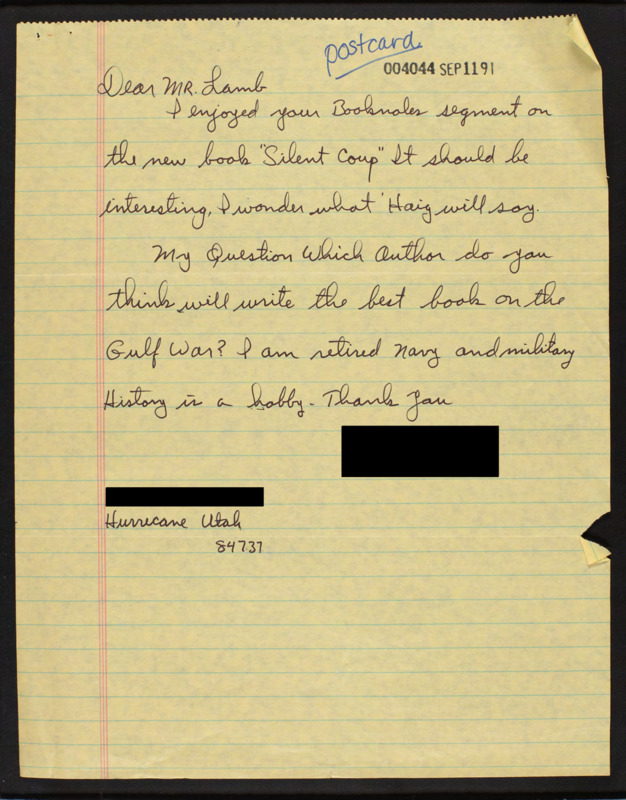 postcard
004044 SEP1191
Dear MR. Lamb
I enjoyed your Booknotes segment on
the new book "Silent Coup" It should be
interesting, I wonder what Haig will say.
My Question Which Author do you
think will write the best book on the
Gulf War? I am retired Navy and military
History is a hobby. Thank You
Hurricane Utah
84737